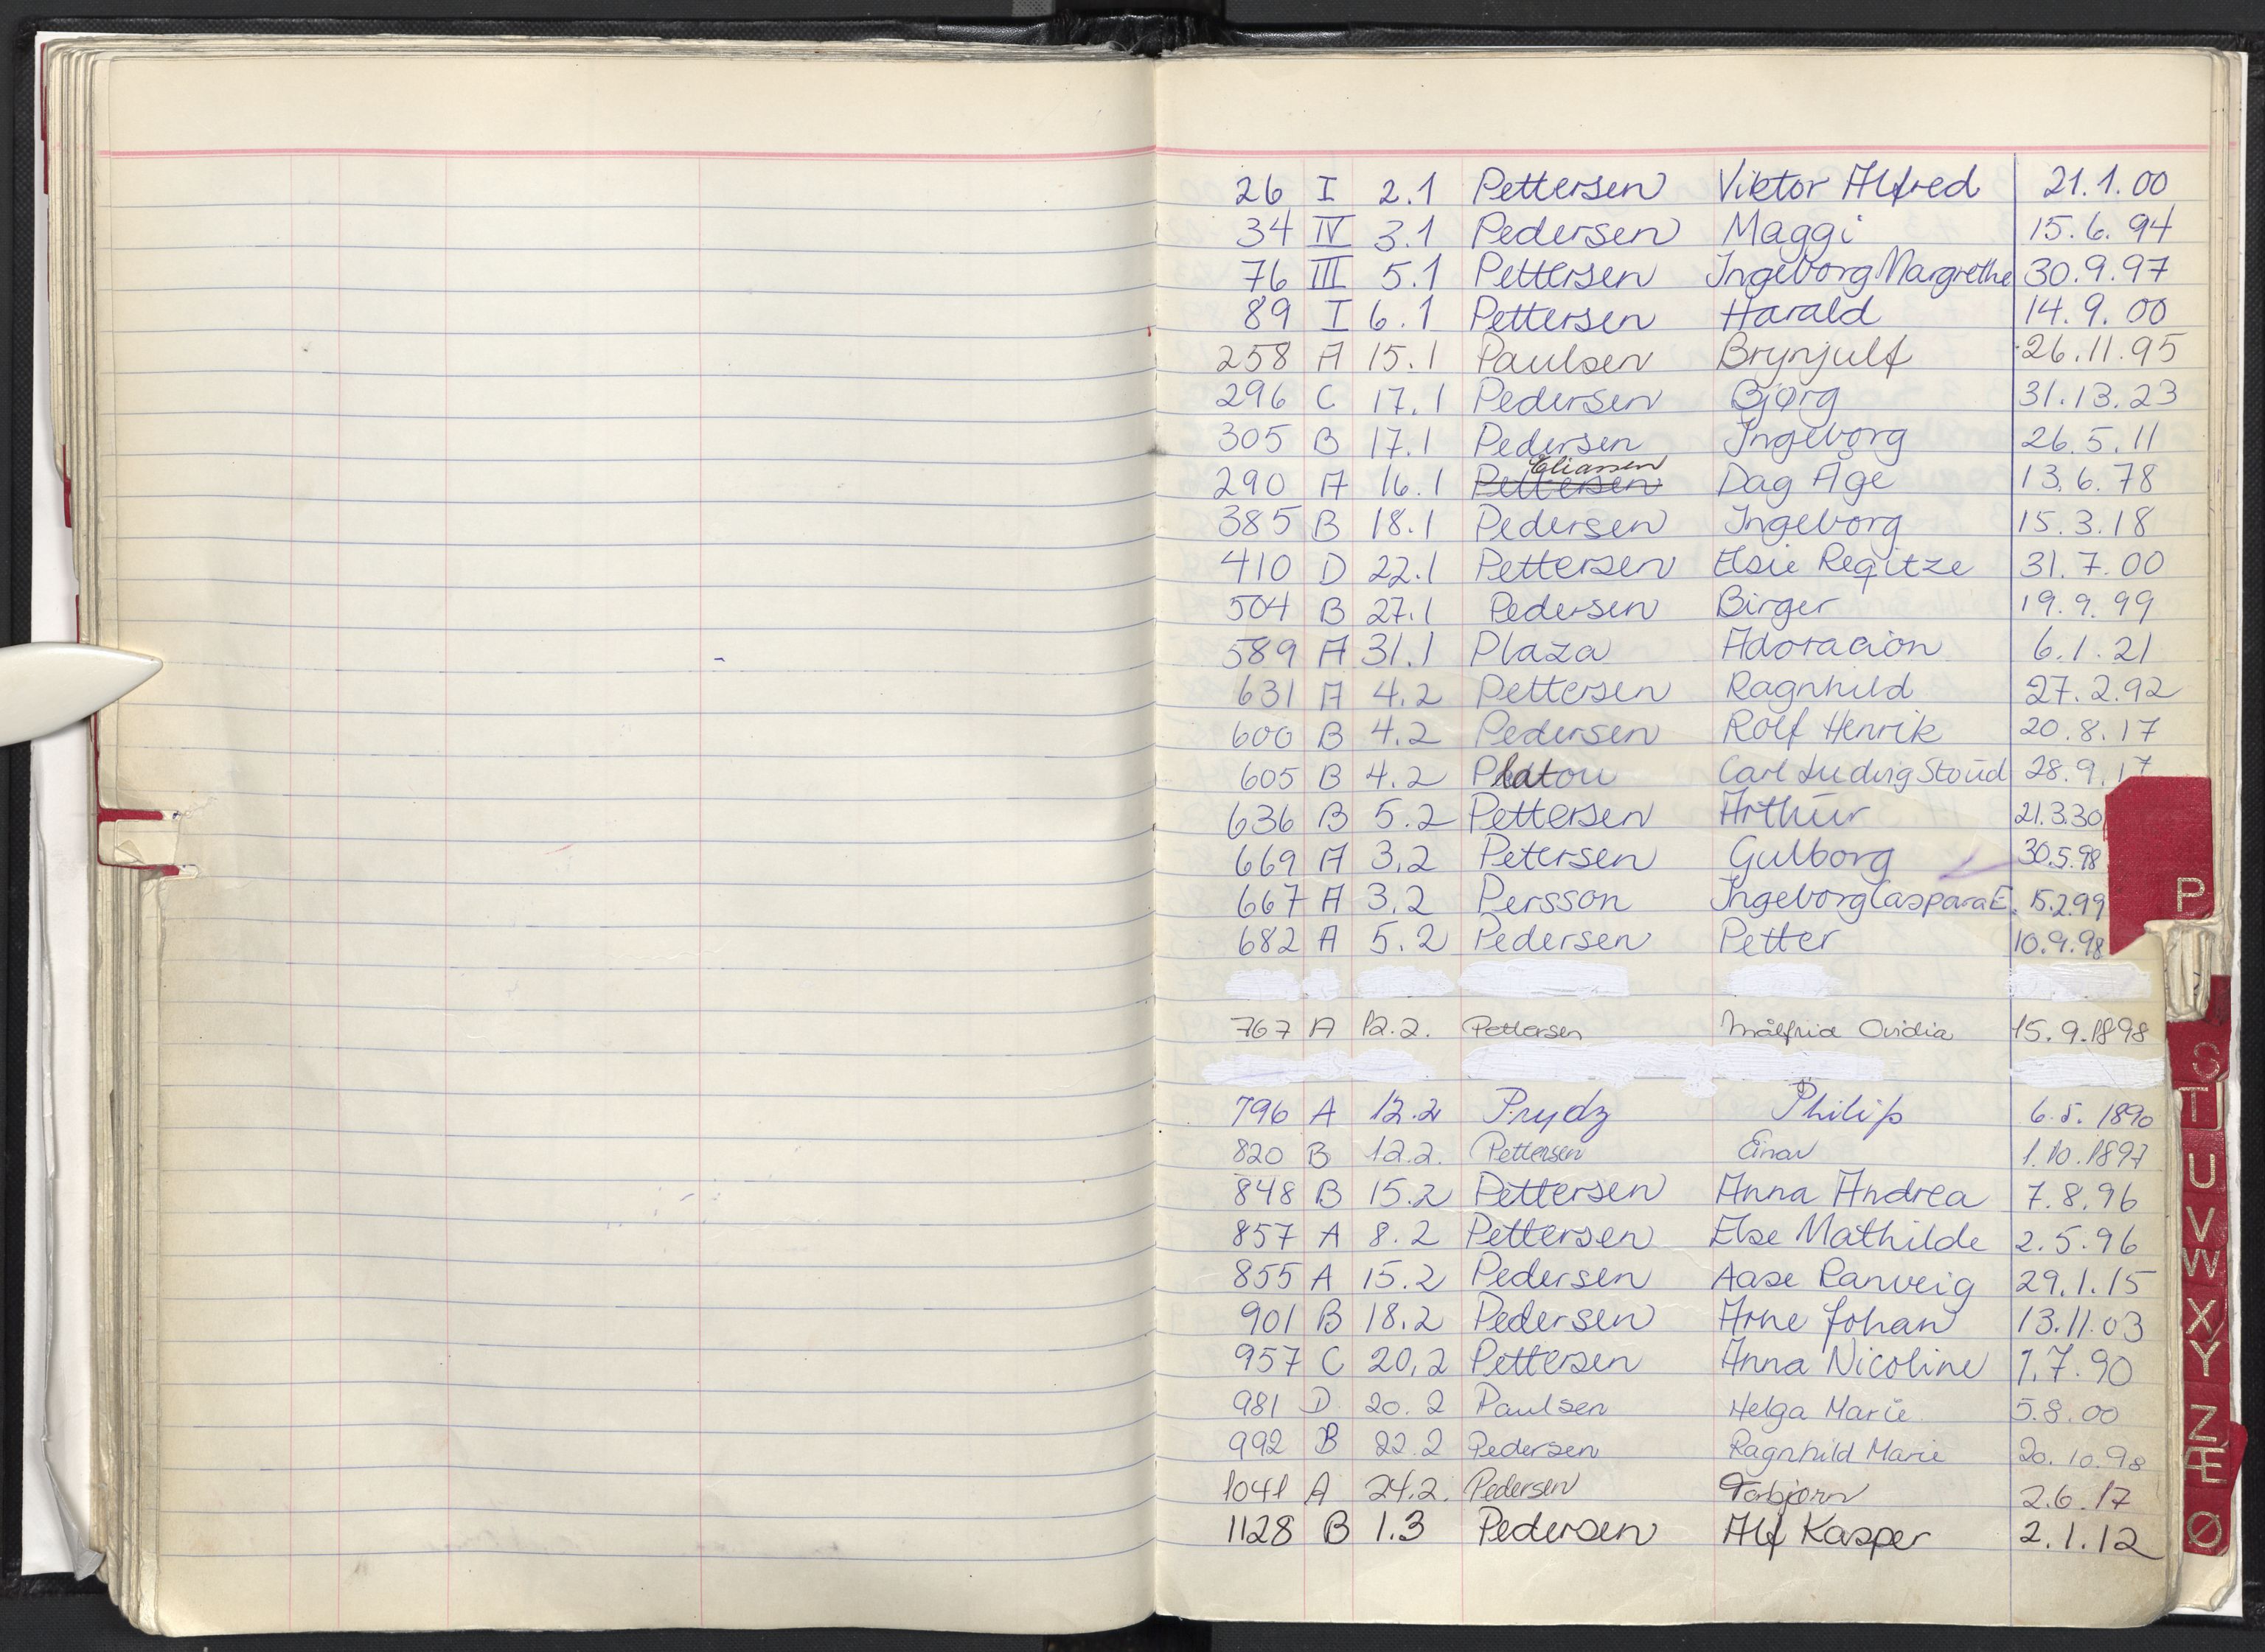 26 I 2.1 Pettersen Viktor Alfred 21.1.00
34 IV 3.1 Pedersen Maggi 15.6.94
76 III 5.1 Pettersen Ingeborg Margrethe 30.9.97
89 I 6.1 Pettersen Harald 14.9.00
258 A 15.1 Paulsen Brynjulf 26.11.95
296 C 17.1 Pedersen Bjørg 31.13.23
305 B 17.1 Pedersen Ingeborg 26.5.11
Eliassen
290 A 16.1 Pettersen Dag Åge 13.6.78
385 B 18.1 Pedersen Ingeborg 15.3.18
410 D 22.1 Pettersen Elsie Regitze 31.7.00
504 B 27.1 Pedersen Birger 19.9.99
589 A 31.1 Plaza Adoracion 6.1.21
631 A 4.2 Pettersen Ragnhild 27.2.92
600 B 4.2 Pedersen Rolf Henrik 20.8.17
605 B 4.2 Platou Carl Ludvig Stoud 28.9.17
636 B 5.2 Pettersen Arthur 21.3.30
669 A 3.2 Petersen Gulborg 30.5.98
667 A 3.2 Persson Ingeborg Caspara E. 15.2.99
P
682 A 5.2 Pedersen Petter 10.9.98
767 A 12.2. Pettersen Målfrid Ovidia 15.9.1898
S
796 A 12.2 Prydz Philip 6.5.1890
T
820 B 12.2. Pettersen Einar 1.10.1897
U
848 B 15.2 Pettersen Anna Andrea 7.8.96
857 A 8.2 Pettersen Else Mathilde 2.5.96
V
W
855 A 15.2 Pedersen Aase Ranveig 29.1.15
901 B 18.2 Pedersen Arne Johan 13.11.03
X
Y
957 C 20.2 Pettersen Anna Nicoline 1.7.90
981 D 20.2 Paulsen Helga Marie 5.8.00
Z
992 B 22.2 Pedersen Ragnhild Marie 20.10.98
Æ
1041 A 24.2. Pedersen Torbjørn 2.6.17
1128 B 1.3 Pedersen Alf Kasper 2.1.12
Ø